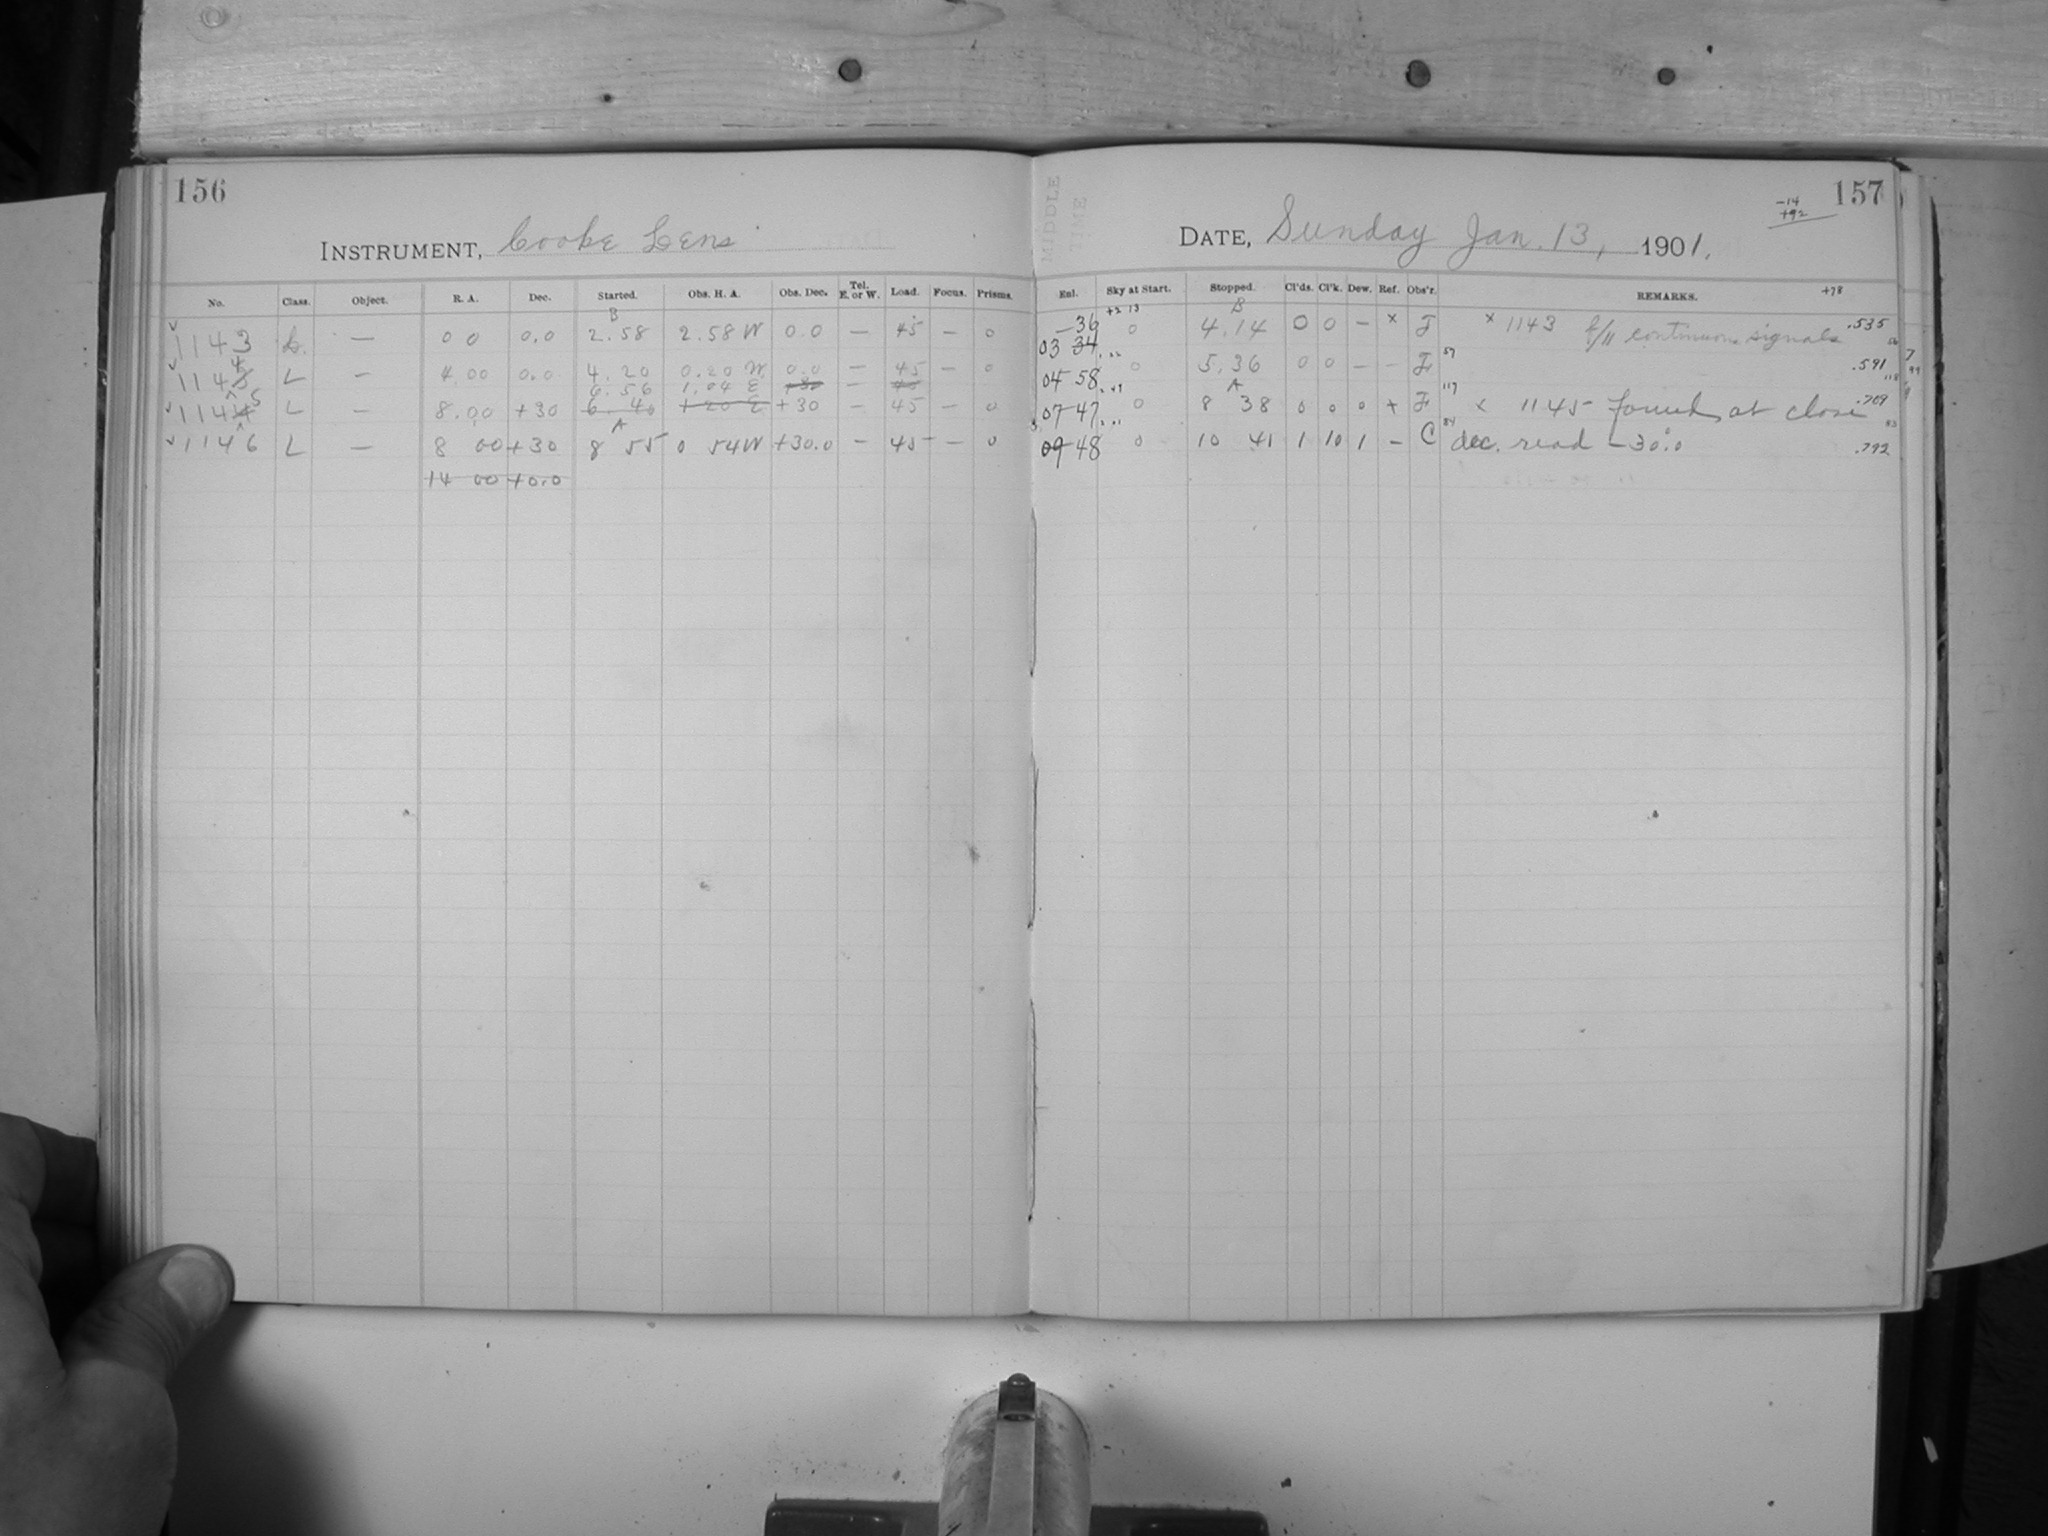 156
INSTRUMENT, Cooke Lens
No. Class. Object. R. A. Dec. Started. Obs. H. A. Obs. Dec. Tel. E. or W. Load. Focus. Prisms.
B
1143 L. — 0 0 0.0 2.58 2.58 W 0.0 — 45 — 0
1144 L — 4.00 0.0 4.20 0.20 W 0.0 — 45 — 0
6.56 1.04 E +30 — 45
1145 L — 8.00 +30 6.40 1 20 E +30 — 45 — 0
A
1146 L — 8 00 +30 8 55 0 54 W +30.0 — 45 — 0
14 00 +0.0
MIDDLE TIME
157
-14
+92
DATE, Sunday Jan. 13, 1901.
Exl. Sky at Start. Stopped. Cl'ds. Cl'k. Dew. Ref. Obs'r. REMARKS. +78
+2 13 B
03 34 36 0 4.14 0 0 — × F × 1143 f/11 continuous signals .535
04 58 0 5.36 0 0 — — F 57 .591
A
07 47 0 8 38 0 0 0 + F 117 × 1145 found at close .709
09 48 0 10 41 1 10 1 — C 84 dec. read -30°.0 .792